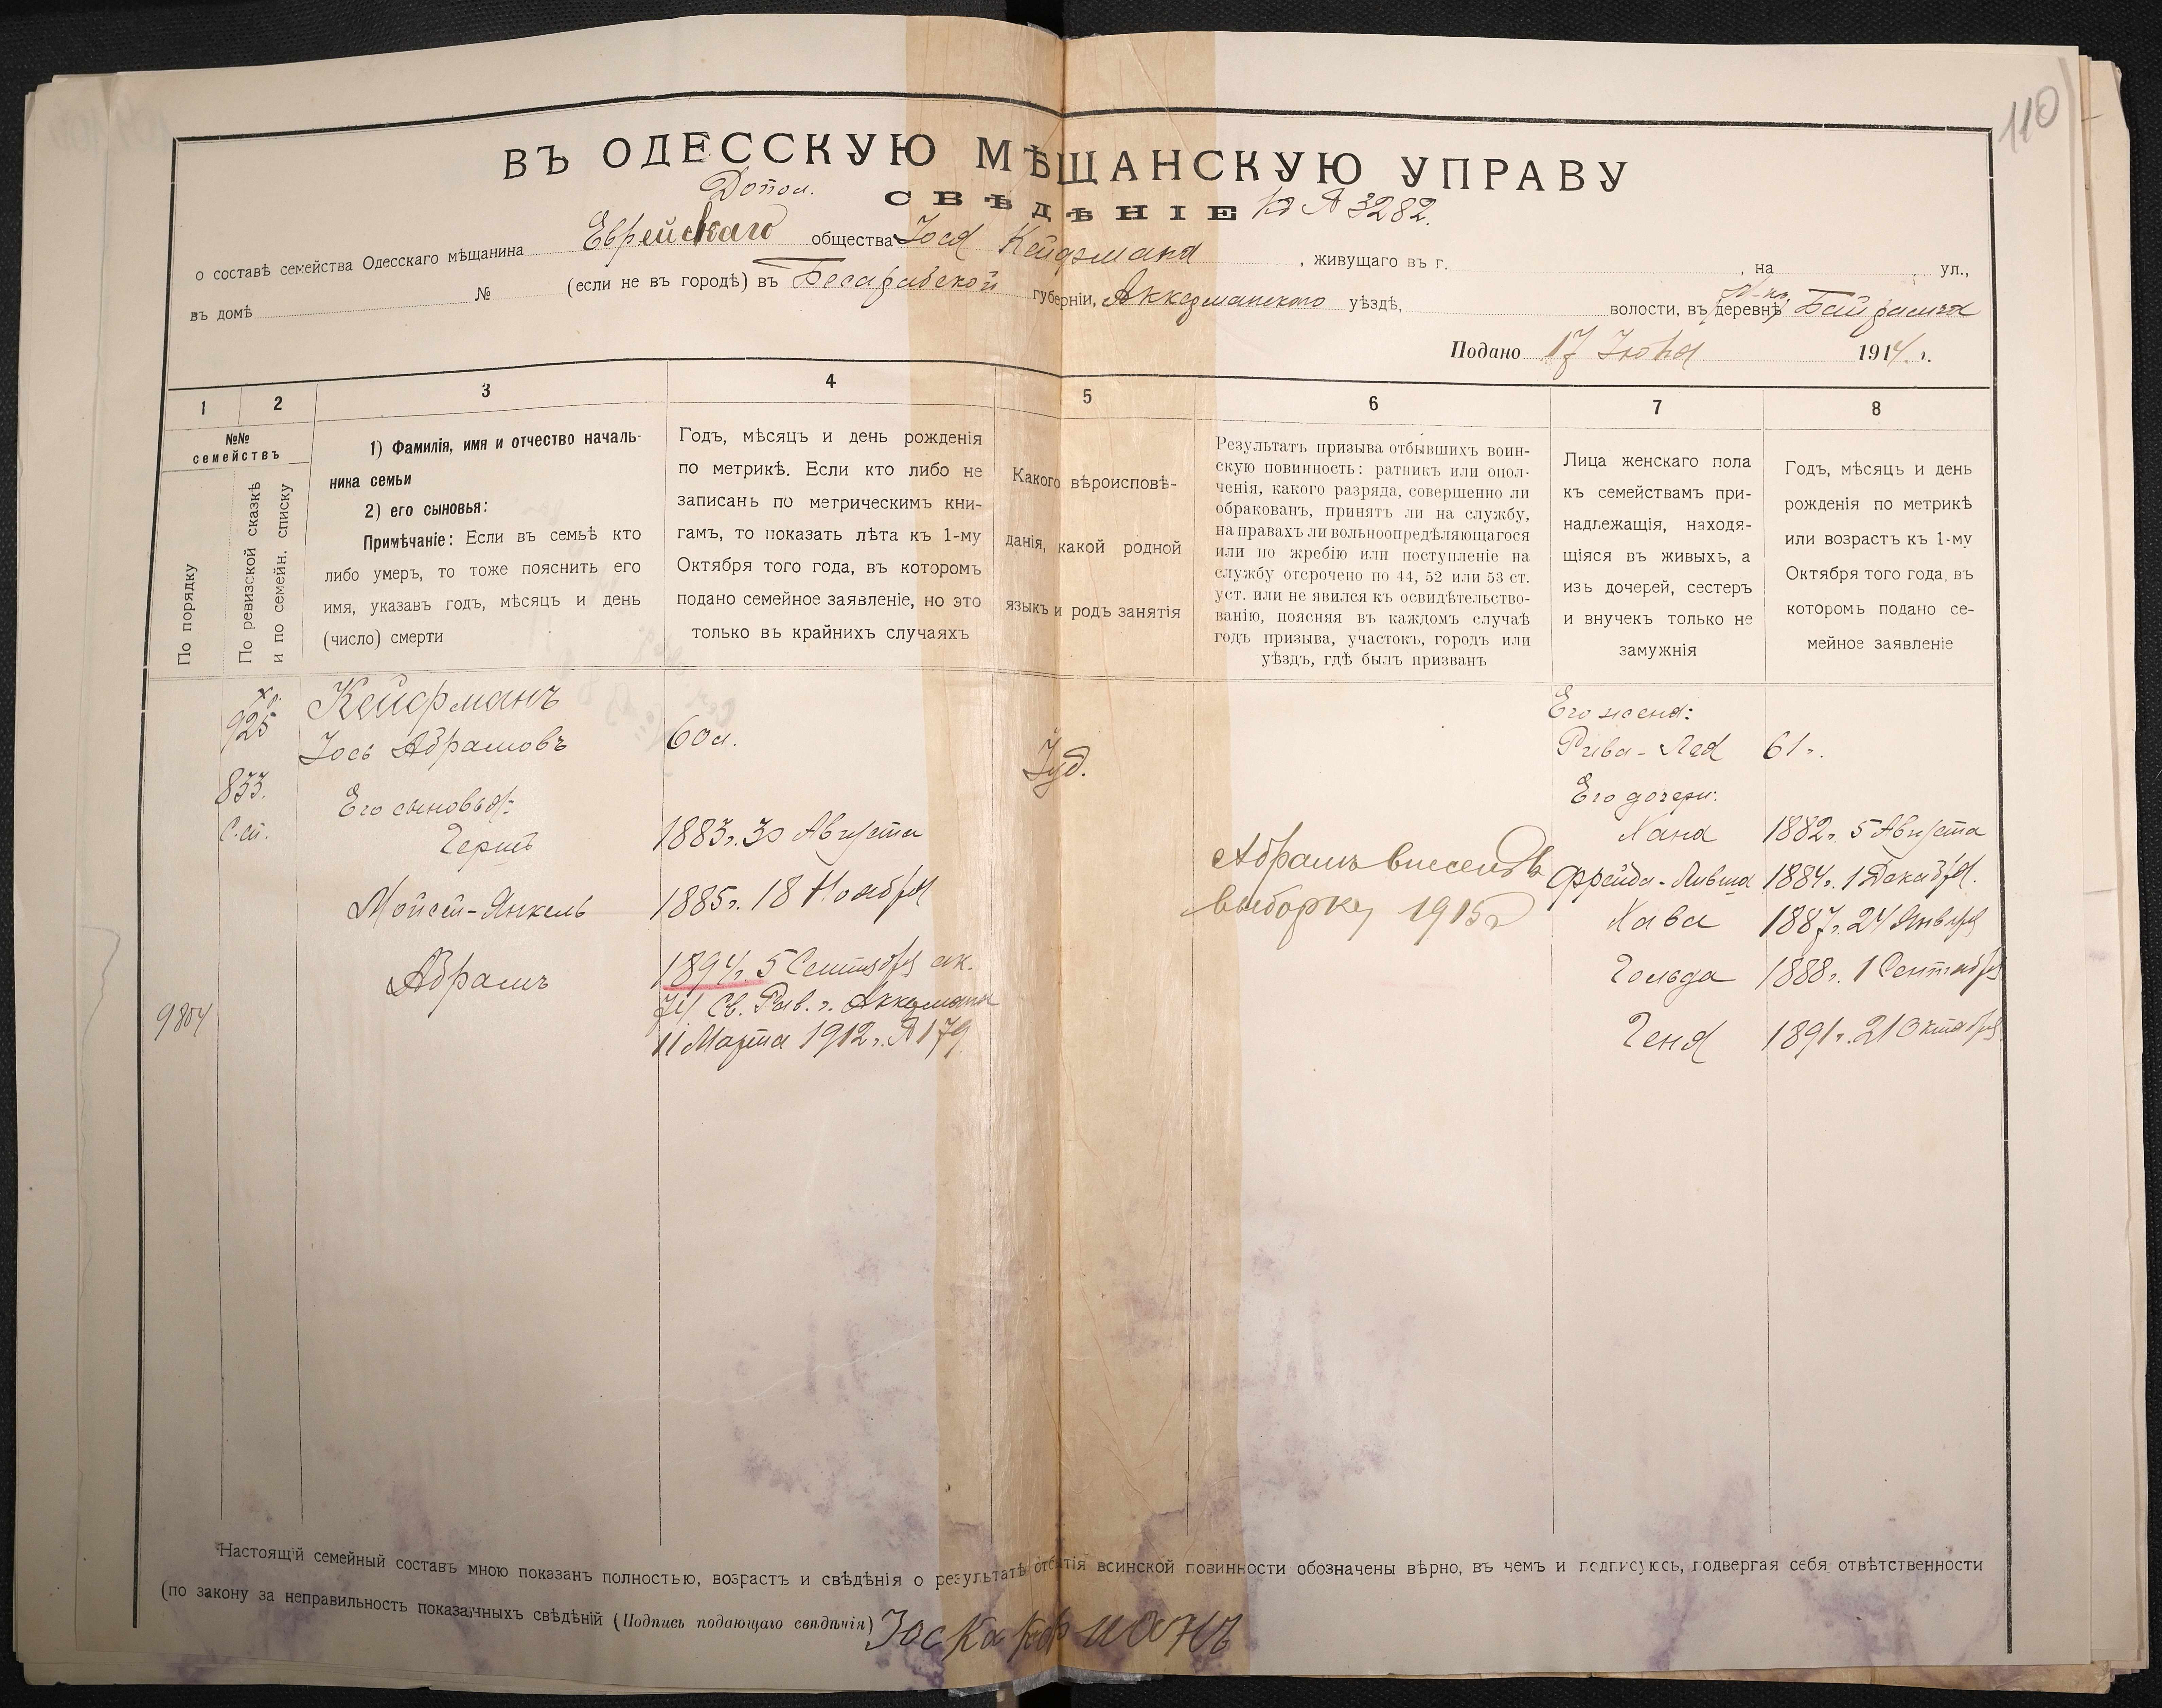 110
ВЪ ОДЕССКУЮ МѢЩАНСКУЮ УПРАВУ
Допол. СВѢДѢНІЕ 3282.
о составѣ семейства Одесскаго мѣщанина Еврейскаго общества Іося Кейфмана, живущаго въ г. , на ул.,
въ домѣ № (если не въ городѣ) въ Бесарабской губерніи, Аккерманскаго уѣздѣ, волости, въ деревнѣ
Подано 17 1914 г.
1 2 3 4 5 6 7 8
№№ семействъ
По порядку
По ревизской сказкѣ
и по семейн. списку
1) Фамилія, имя и отчество началь-
ника семьи
2) его сыновья:
Примѣчаніе: Если въ семьѣ кто
либо умеръ, то тоже пояснить его
имя, указавъ годъ, мѣсяцъ и день
(число) смерти
Годъ, мѣсяцъ и день рожденія
по метрикѣ. Если кто либо не
записанъ по метрическимъ кни-
гамъ, то показать лѣта къ 1-му
Октября того года, въ которомъ
подано семейное заявленіе, но это
только въ крайнихъ случаяхъ
Какого вѣроисповѣ-
данія, какой родной
языкъ и родъ занятія
Результатъ призыва отбывшихъ воин-
скую повинность: ратникъ или опол-
ченія, какого разряда, совершенно ли
обракованъ, принятъ ли на службу,
на правахъ ли вольноопредѣляющагося
или по жребію или поступленіе на
службу отсрочено по 44, 52 или 53 ст.
уст. или не явился къ освидѣтельство-
ванію, поясняя въ каждомъ случаѣ
годъ призыва, участокъ, городъ или
уѣздъ, гдѣ былъ призванъ
Лица женскаго пола
къ семействамъ при-
надлежащія, находя-
щіяся въ живыхъ, а
изъ дочерей, сестеръ
и внучекъ только не
замужнія
Годъ, мѣсяцъ и день
рожденія по метрикѣ
или возрастъ къ 1-му
Октября того года, въ
которомъ подано се-
мейное заявленіе
925 Кейфманъ Его жена:
Іось Абрамовъ 60 л. Іуд. Рива-Лея 61 г.
833. Его сыновья: Его дочери:
С.сп. Герш 1883 г. 30 Августа Хана 1882 г. 5 Августа
Абрамъ внесенъ въ Фрейда- 1884 г. 1 Декабря
Мойсей-Янкель 1885 г. 18 Ноября выборку 1915 г. Хава 1887 г. 24 Января
Абрамъ 1894 г. 5 Сентября Гольда 1888 г. 1 Сентября
9804 Св. Рав. г. Аккермана
11 Марта 1912 г. № 179 Геня 1891 г. 21 Октября
Настоящій семейный составъ мною показанъ полностью, возрастъ и свѣдѣнія о результатѣ отбытія воинской повинности обозначены вѣрно, въ чемъ и подписуюсь, подвергая себя отвѣтственности
(по закону за неправильность показанныхъ свѣдѣній (Подпись подающаго свѣдѣнія)